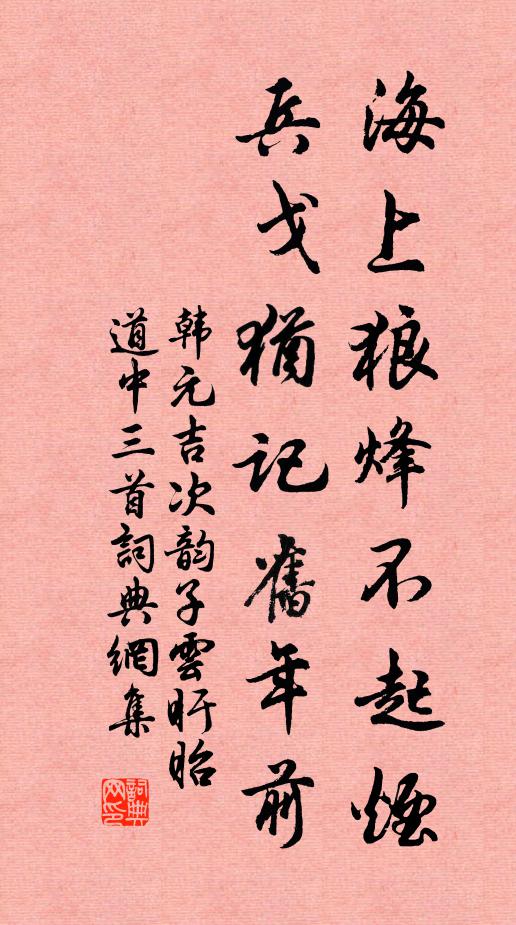 海上狼烽不起煙
兵戈猶記舊年前
韩元吉次韵子雲盱眙
道中三首詞典網集
詞典網印